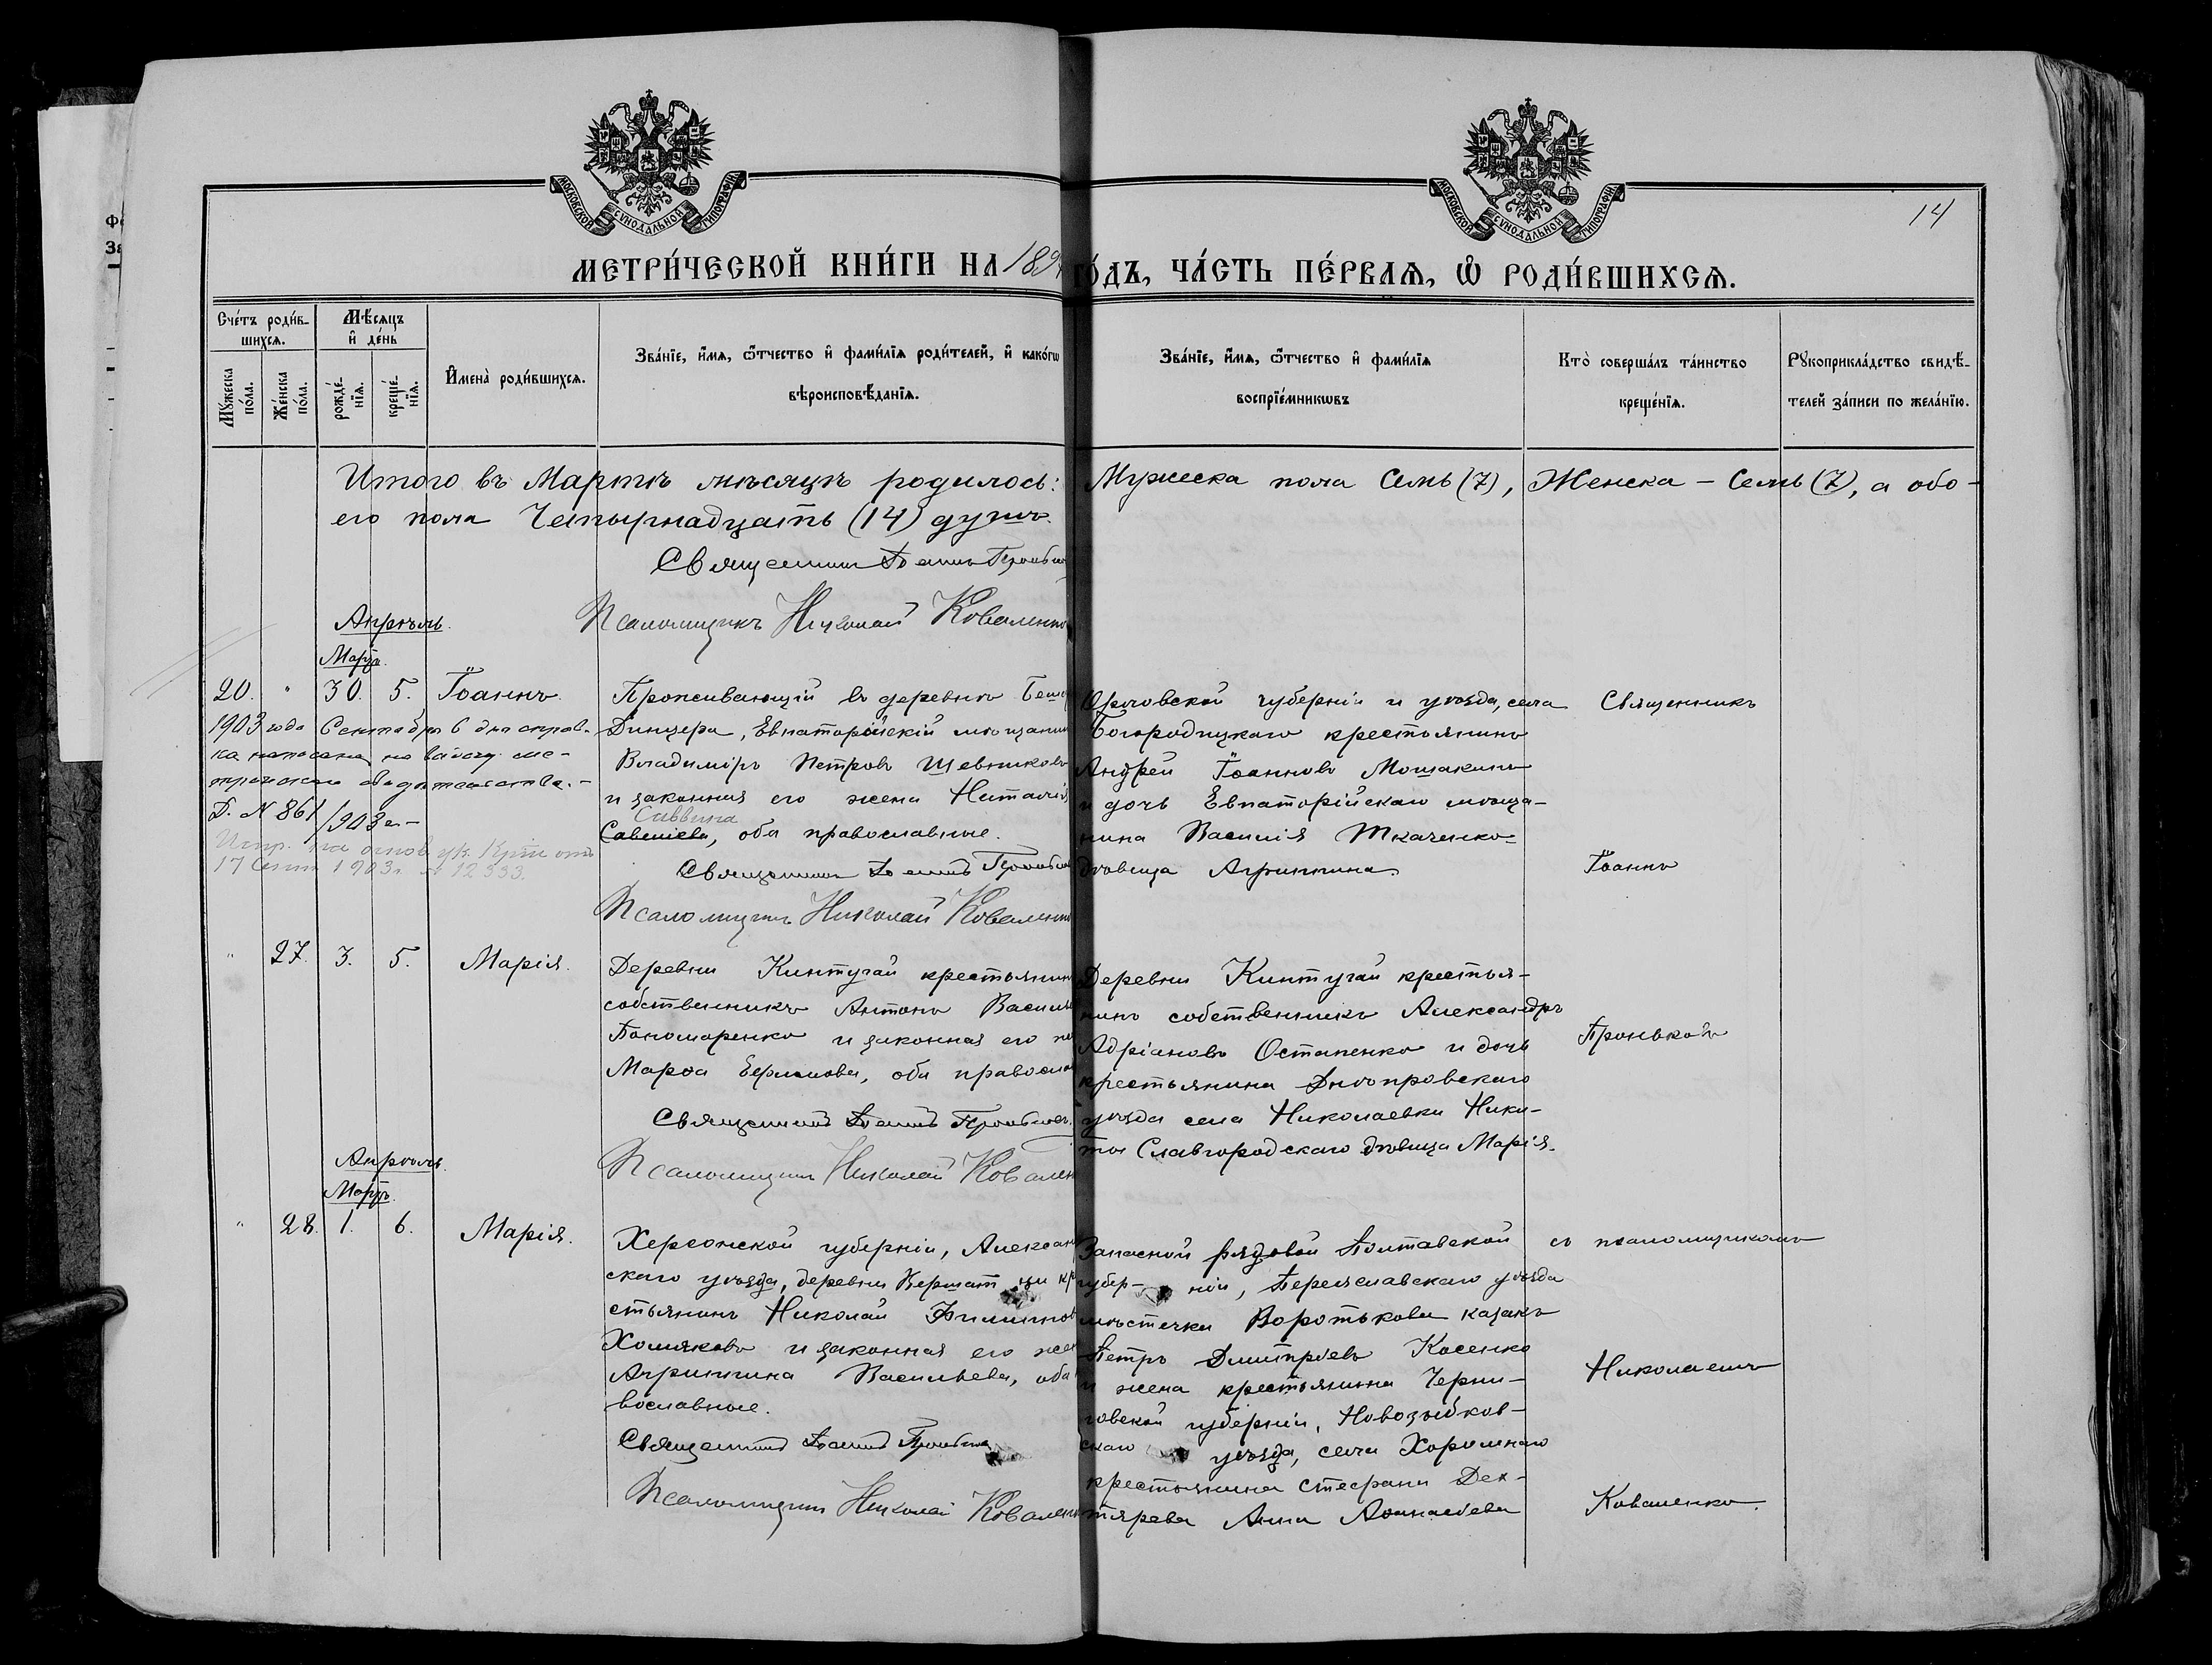 МОСКОВСКОЙ СѴНОДАЛЬНОЙ ТИПОГРАФІИ
МОСКОВСКОЙ СѴНОДАЛЬНОЙ ТИПОГРАФІИ
14
МЕТРИ́ЧЕСКОЙ КНИ́ГИ НА 189 ГО́ДЪ, ЧА́СТЬ ПЕ́РВАѦ, Ѡ҆ РОДИ́ВШИХСѦ.
Сче́тъ роди́в-
шихсѧ.
Мꙋ́жеска
по́ла.
Же́нска
по́ла.
Мѣ́сѧцъ
и҆ де́нь
рожде́-
нїѧ.
креще́-
нїѧ.
И҆мена̀ роди́вшихсѧ.
Зва́нїе, и҆́мѧ, ѻ҆́тчество и҆ фами́лїѧ роди́телей, и҆ како́гѡ
вѣроисповѣ́данїѧ.
Зва́нїе, и҆́мѧ, ѻ҆́тчество и҆ фами́лїѧ
воспрїе́мникѡвъ
Кто̀ соверша́лъ та́инство
креще́нїѧ.
Рꙋкоприкла́дство свидѣ́-
телей за́писи по жела́нїю.
Итого въ Мартѣ мѣсяцѣ родилось: Мужеска пола Семь (7), Женска – Семь (7), а обо-
его пола Четырнадцать (14) душъ.
Священникъ Іоаннъ Проньковъ
Псаломщикъ Николай Коваленко
Апрѣль.
Мартъ.
20. " 30. 5. Іоаннъ
1903 года Сентября 6 дня справ-
ка написана на выдачу ме-
трическаго свидѣтельства.-
Д. N 861/903 г.-
Испр. на основ. ук. от
17 Сент. 1903 г. N 12333.
Проживающій въ деревнѣ Беш
Динцера, Евпаторійскій мѣщанин
Владиміръ Петровъ Шевниковъ
и законная его жена Наталія
Саввина
Савеліева, оба православные.
Священникъ Іоаннъ Проньков
Псаломщикъ Николай Коваленко
Орловской губерніи и уѣзда, села
Богородицкаго крестьянинъ
Андрей Іоанновъ Мошакинъ
и дочь Евпаторійскаго мѣща-
нина Василія Ткаченко
дѣвица Агриппина.
Священникъ
Іоаннъ
" 27. 3. 5. Марія.
Деревни Кинтугай крестьянин
собственникъ Антонъ Василь
Пономаренко и законная его
Марѳа Ефимова, оба правосла
Священникъ Іоаннъ Проньковъ.
Псаломщикъ Николай Ковален
Деревни Кинтугай крестья-
нинъ собственникъ Александръ
Адріановъ Остапенко и дочь
крестьянина Днѣпровскаго
уѣзда села Николаевки Ники-
ты Славгородскаго дѣвица Марія.
Проньковъ
Апрѣль.
Мартъ.
" 28. 1. 6. Марія.
Херсонской губерніи, Алексан
скаго уѣзда, деревни кр
стьянинъ Николай Филиппов
Хомяковъ и законная его жен
Агриппина Васильева, оба
вославные.
Священникъ Іоаннъ Проньков
Псаломщикъ Николай Коваленк
Запасной рядовой Полтавской
губер- ніи, Переяславскаго уѣзда
мѣстечка Воротькова казакъ
Петръ Дмитріевъ Косенко
и жена крестьянина Черни-
говской губерніи, Новозыбков-
скаго уѣзда, села Хоромнаго
крестьянина Стефана Дех-
тярева Анна Аѳанасіева
съ псаломщикомъ
Николаемъ
Коваленко.